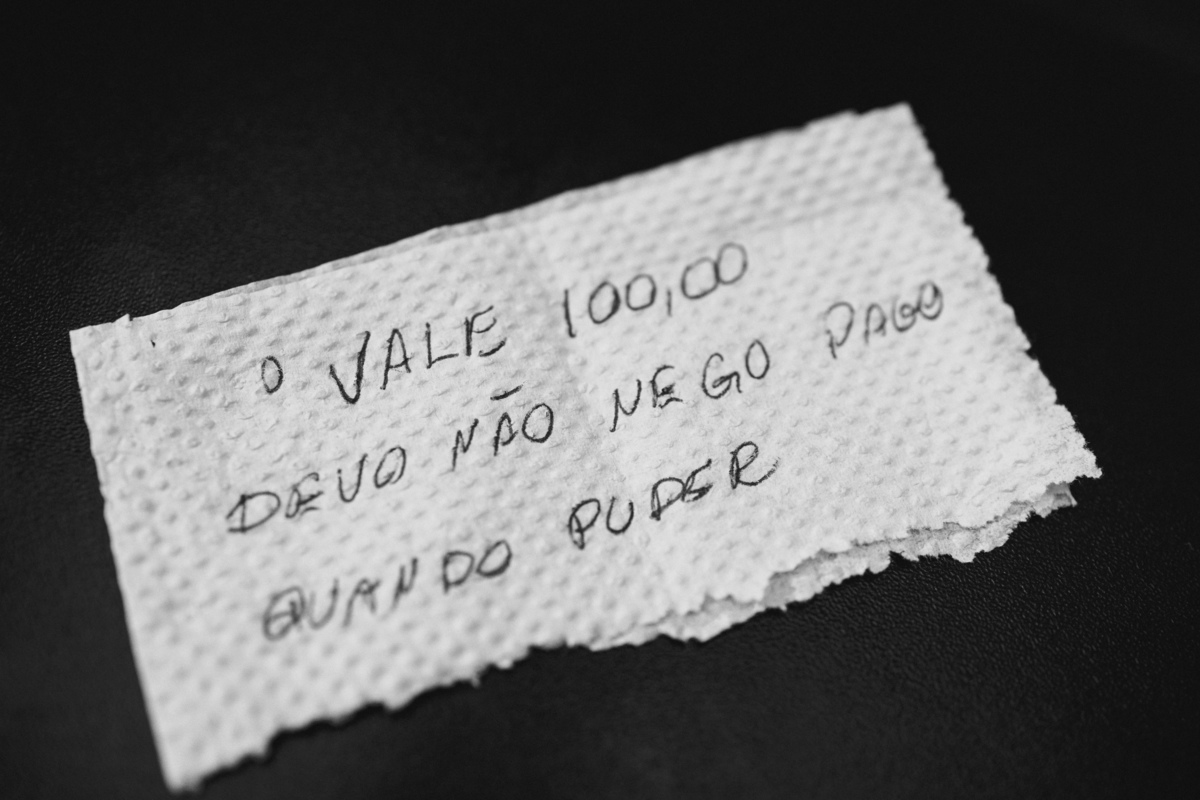 O VALE 100,00
DEVO NÃO NEGO PAGO
QUANDO PUDER